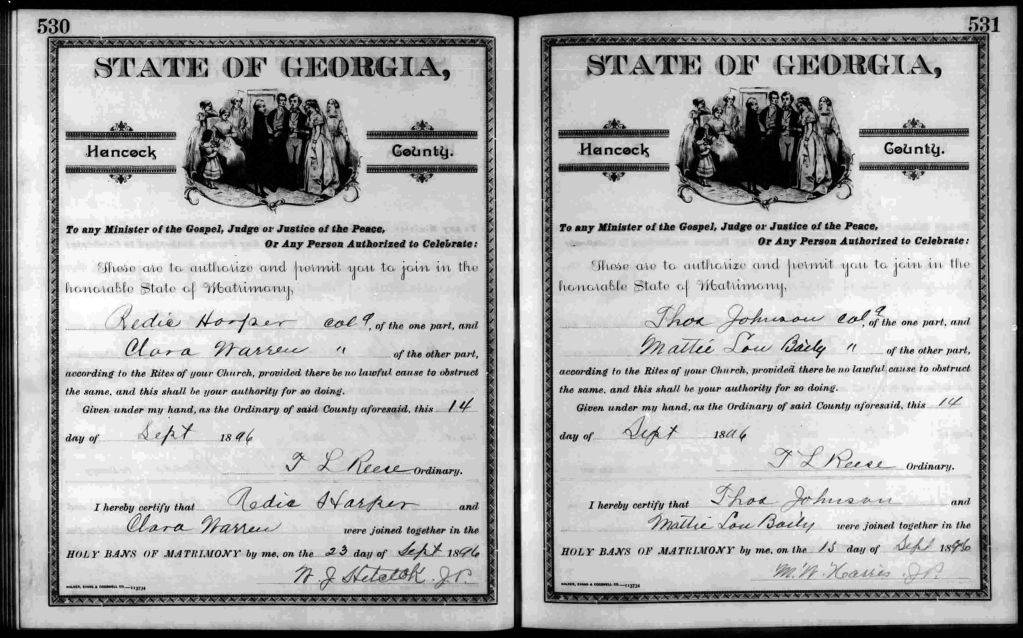 530
STATE OF GEORGIA,
Hancock County.
To any Minister of the Gospel, Judge or Justice of the Peace,
Or Any Person Authorized to Celebrate:
These are to authorize and permit you to join in the
honorable State of Matrimony,
Redic Harper col'd, of the one part, and
Clara Warren " of the other part,
according to the Rites of your Church, provided there be no lawful cause to obstruct
the same, and this shall be your authority for so doing.
Given under my hand, as the Ordinary of said County aforesaid, this 14
day of Sept 1896
T L Reese Ordinary.
I hereby certify that Redic Harper and
Clara Warren were joined together in the
HOLY BANS OF MATRIMONY by me, on the 23 day of Sept 1896
W. J. J.P.
531
STATE OF GEORGIA,
Hancock County.
To any Minister of the Gospel, Judge or Justice of the Peace,
Or Any Person Authorized to Celebrate:
These are to authorize and permit you to join in the
honorable State of Matrimony,
Thos Johnson col'd, of the one part, and
Mattie Lou Baily " of the other part,
according to the Rites of your Church, provided there be no lawful cause to obstruct
the same, and this shall be your authority for so doing.
Given under my hand, as the Ordinary of said County aforesaid, this 14
day of Sept 1896
T L Reese Ordinary.
I hereby certify that Thos Johnson and
Mattie Lou Baily were joined together in the
HOLY BANS OF MATRIMONY by me, on the 15 day of Sept 1896
M. W. Harris J.P.